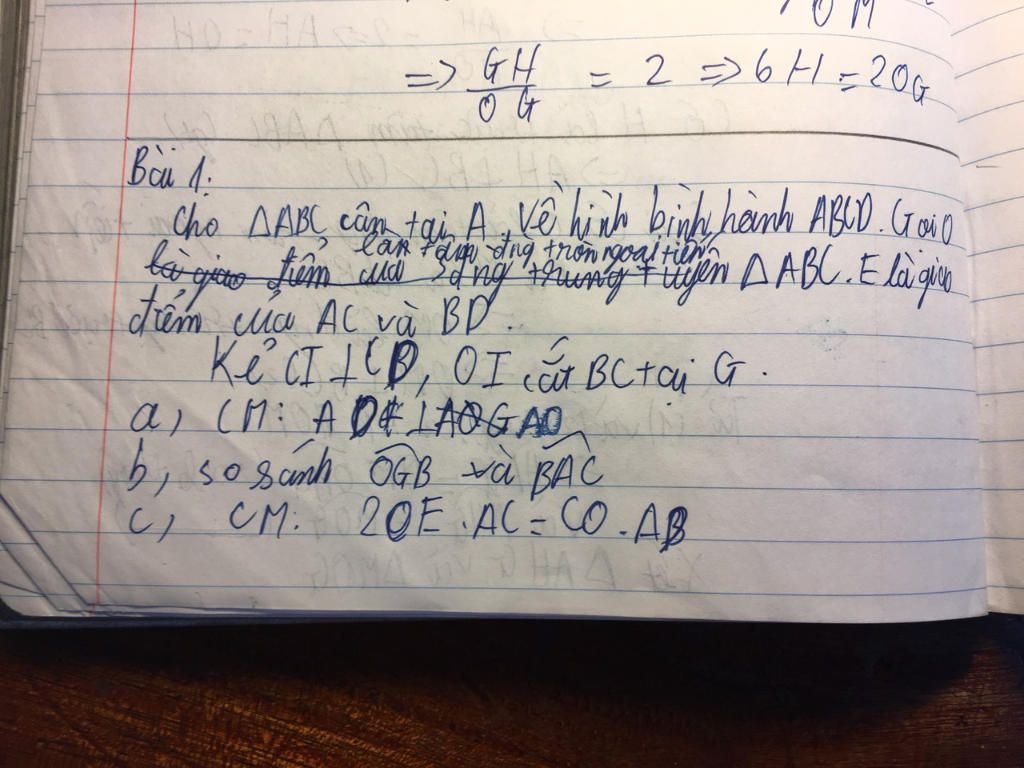 OM
=> GH/OG = 2 => GH = 2OG
Bài 1:
Cho ΔABC cân tại A, vẽ hình bình hành ABCD. Gọi O
là tâm đng tròn ngoại tiếp
là giao điểm của 3 đng trung tuyến ΔABC. E là giao
điểm của AC và BD.
Kẻ CI ⊥ CD, OI cắt BC tại G.
a, CM: AD ⊥ AO
b, so sánh OGB và BAC
c, CM: 2OE.AC = CO.AB